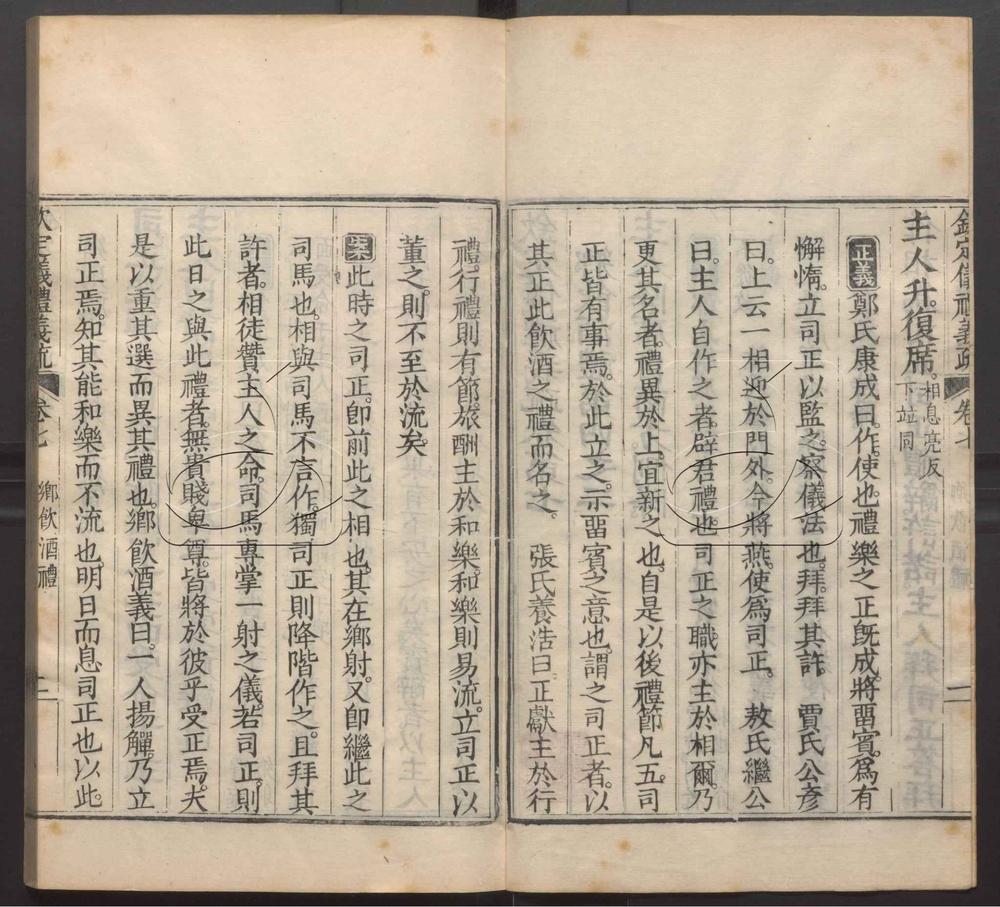 欽定儀禮義疏 卷七
主人升復席。相息亮反
下竝同
正義鄭氏康成曰。作。使也。禮樂之正旣成。將畱賓。爲有
懈惰。立司正以監之。察儀法也。拜。拜其許 賈氏公彥
曰。上云一相迎於門外。今將燕。使爲司正。 敖氏繼公
曰。主人自作之者。辟君禮也。司正之職。亦主於相爾。乃
更其名者。禮異於上。宜新之也。自是以後。禮節凡五。司
正皆有事焉。於此立之。示畱賓之意也。謂之司正者。以
其正此飮酒之禮而名之。 張氏養浩曰正獻主於行
禮。行禮則有節。旅酬主於和樂。和樂則易流。立司正以
董之。則不至於流矣。
案此時之司正。卽前此之相也。其在鄉射。又卽繼此之
司馬也。相與司馬不言作。獨司正則降階作之。且拜其
許者。相徒贊主人之命。司馬專掌一射之儀。若司正。則
此日之與此禮者。無貴賤卑尊。皆將於彼乎受正焉。夫
是以重其選而異其禮也。鄉飮酒義曰。一人揚觶。乃立
司正焉。知其能和樂而不流也。明日而息司正也以此
欽定儀禮義疏 卷七 鄉飮酒禮 二